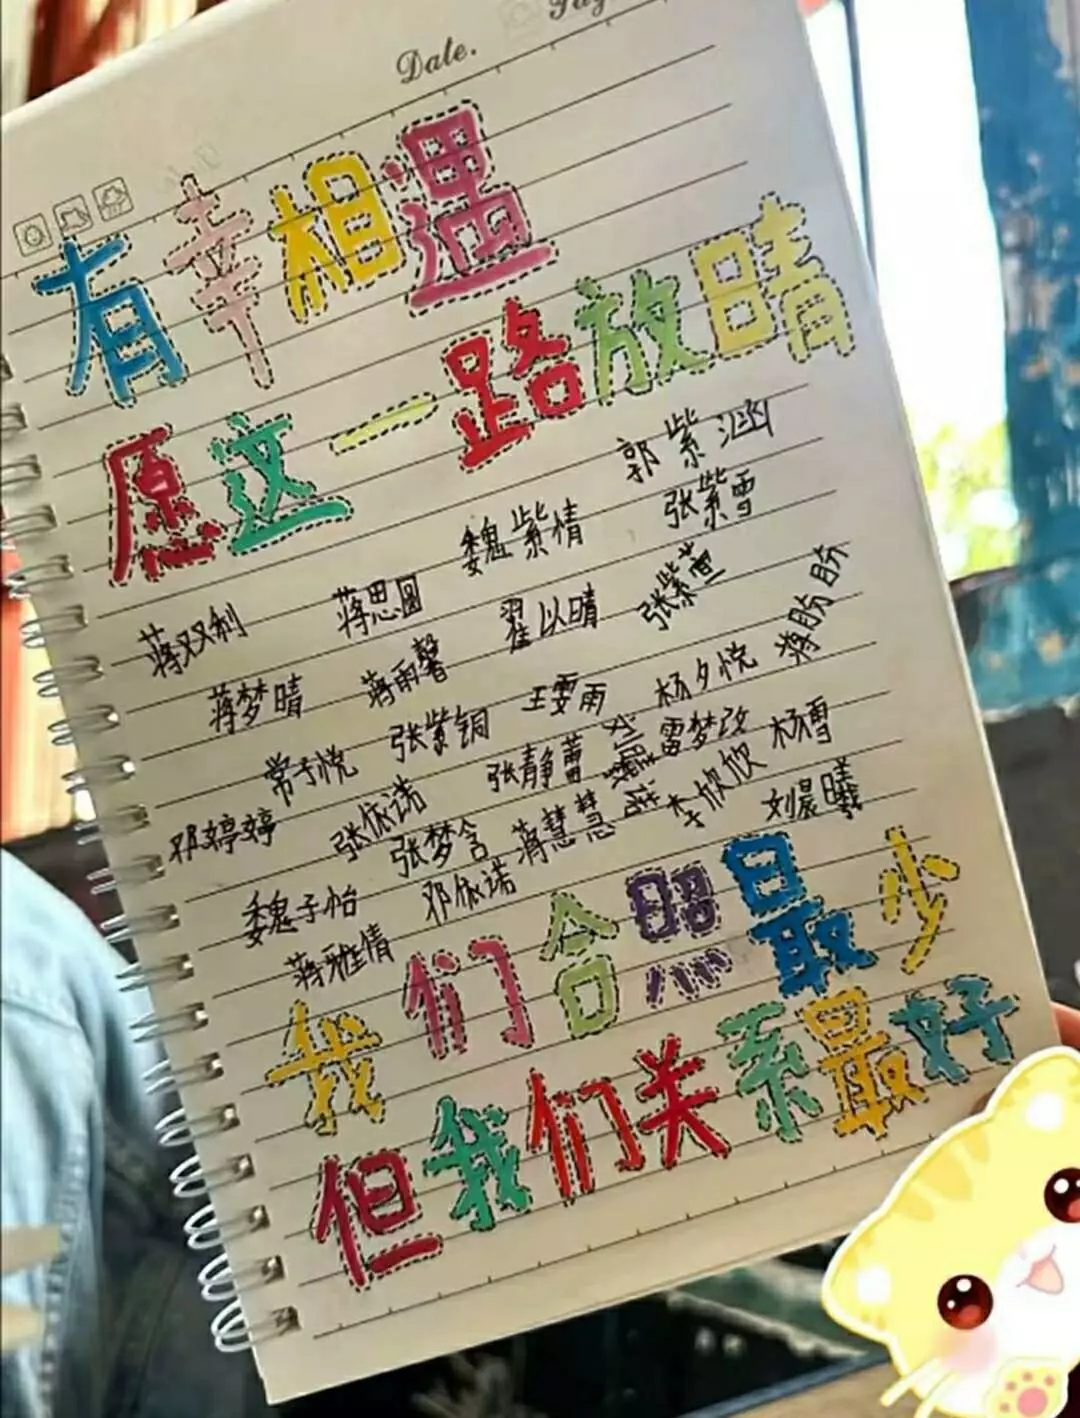 Date.
有幸相遇
愿这一路放晴
郭紫涵
魏紫情 张紫雪
蒋双利 蒋思圆 翟以晴 张紫萱
蒋梦晴 蒋雨馨 王雯雨 杨夕悦 蒋盼盼
常子悦 张紫铜 张静蕾 雷梦改 杨雪
邓婷婷 张依诺 张梦含 蒋慧慧 李欣欣 刘晨曦
魏子怡 邓依诺
蒋雅倩
我们合照最少
但我们关系最好